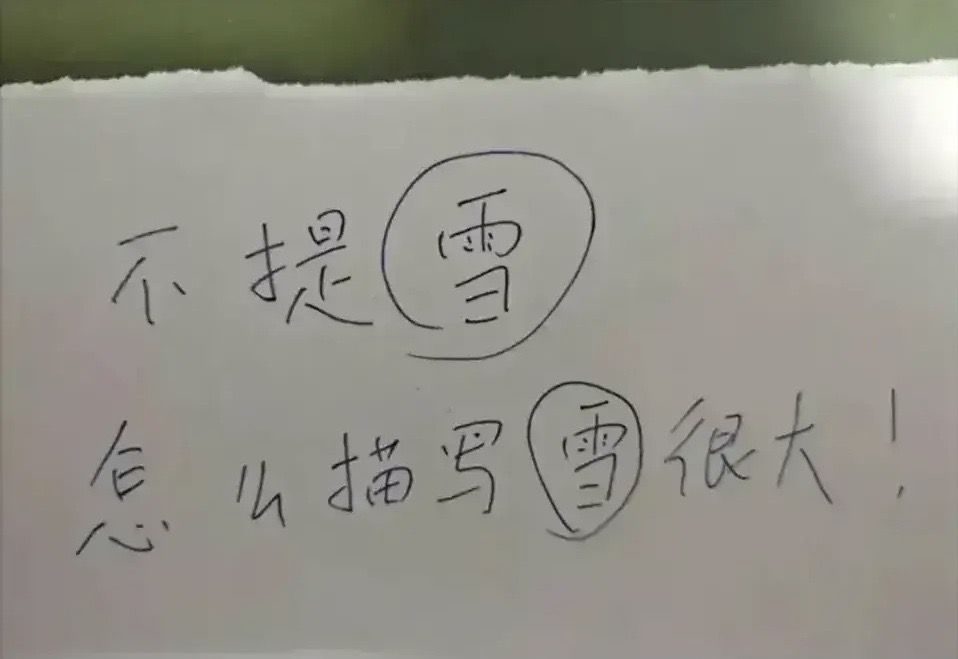 不提雪
怎么描写雪很大！